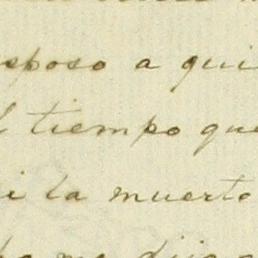 esposo a qui
l tiempo que
i la muerte
me dijo